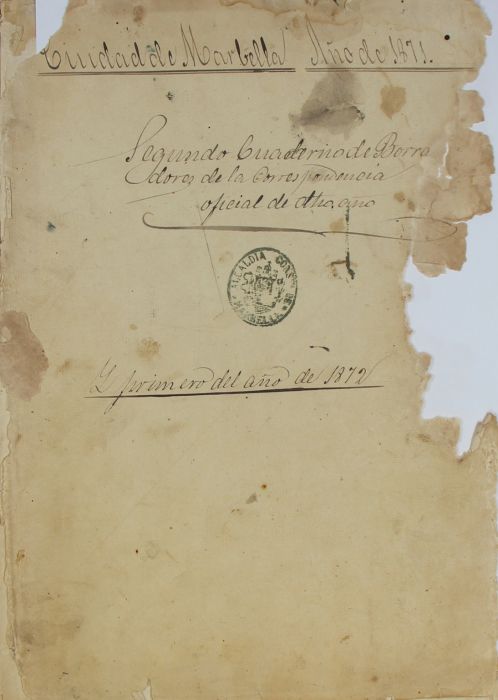 Cuidad de Marbella Año de 1871.
Segundo Cuaderno de Borra
dores de la Correspondencia
oficial de dho. año
ALCALDIA CONST. DE MARBELLA
Y primero del año de 1872